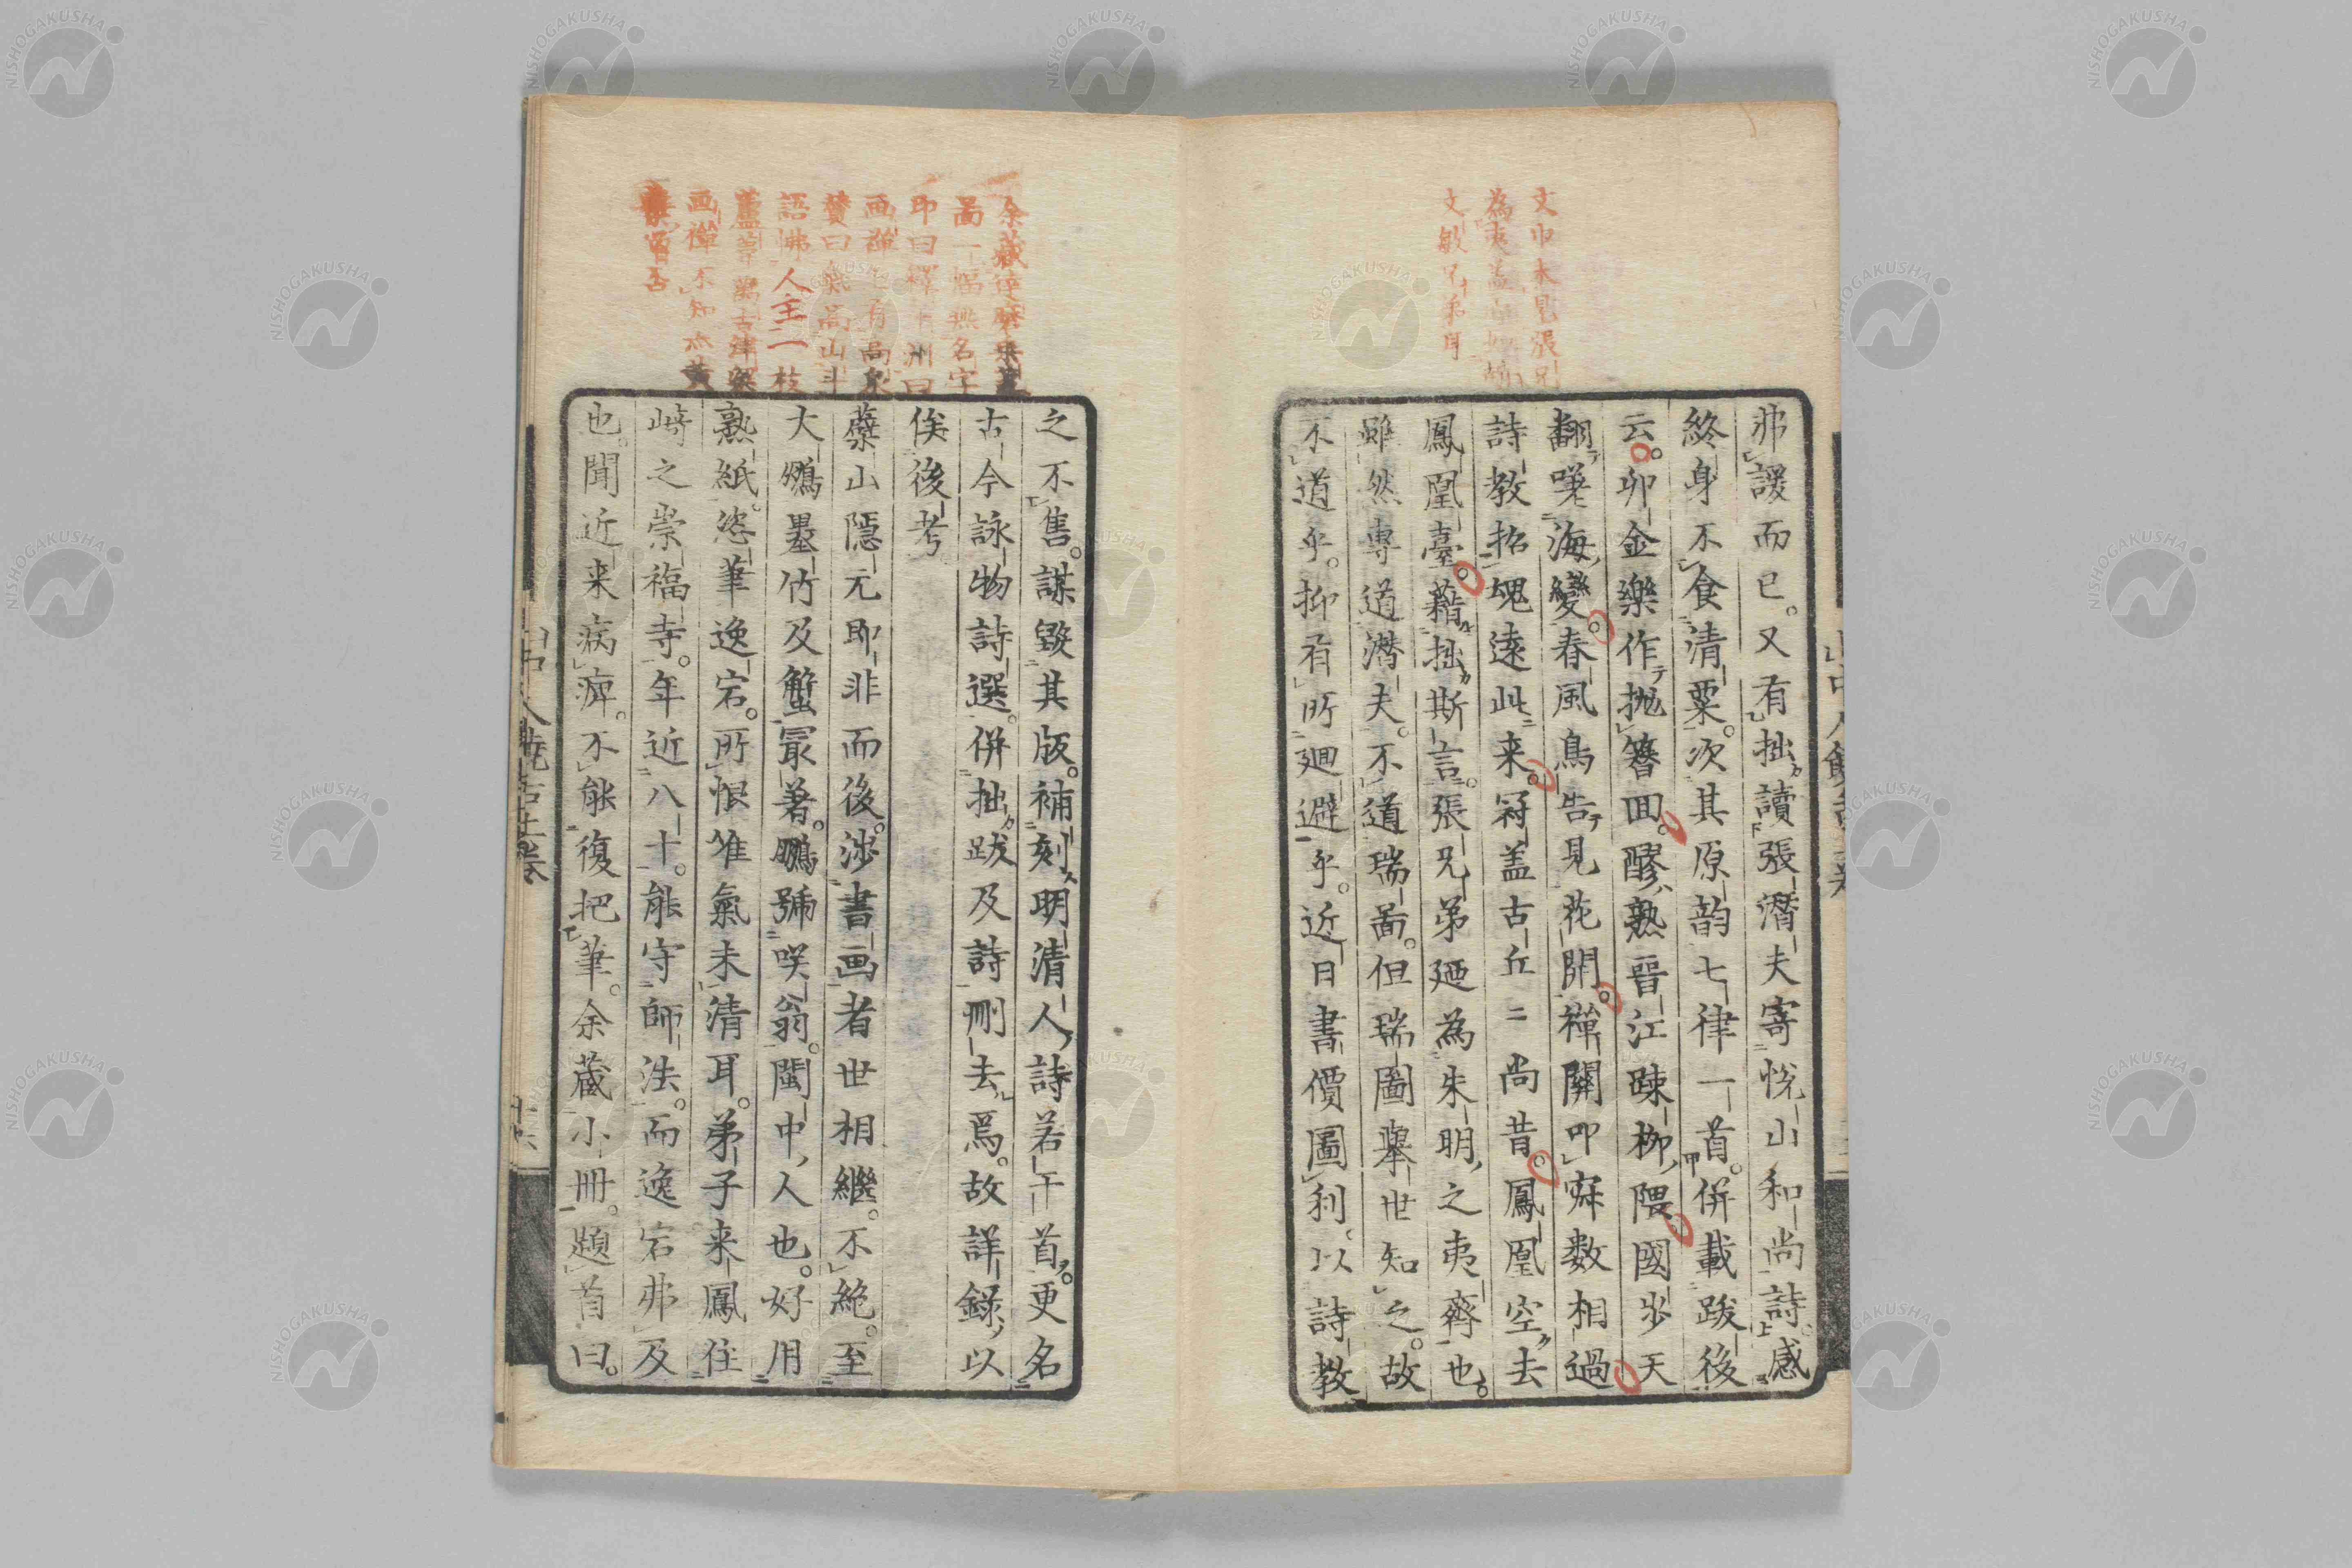 文巾未見張兄
文敏兄弟耳
弗諼而已。又有拙讀張潛夫寄悅山和尚詩。感
終身不食清粟。次其原韵七律一首。併載跋後
云。卯金樂作拋簪回。醪熟晉江疎柳隈國步天
翻嘆海變。春風鳥告見花開。禪關叩寂数相過
詩教招魂遠此来。冠盖古丘二尚昔。鳳凰空去
鳳凰臺。藉拙斯言。張兄弟廼為朱明之夷齊也。
雖然專道潛夫。不道瑞啚。但瑞圖舉世知之。故
不道乎。抑有所廻避乎。近日書價圖利。以詩教
余藏達磨
啚一幅無名字
印曰 洲曰
画禪 有高泉
賛曰 高山斗
語怫人主一枝
蘆 萬古
画禪不知
之不售。謀毀其版。補刻明清人詩若干首。更名
古今詠物詩選。併拙跋及詩刪去焉。故詳錄以
俟後考
蘗山隱元即非而後。涉書画者世相繼。不絶。至
大鵬墨竹及蟹最著。鵬號咲翁。閩中人也。好用
熟紙。恣筆逸宕。所恨惟氣未清耳。弟子来鳳住
崎之崇福寺。年近八十。能守師法。而逸宕弗及
也。聞近来病痺。不能復把筆。余藏小冊。題首曰。